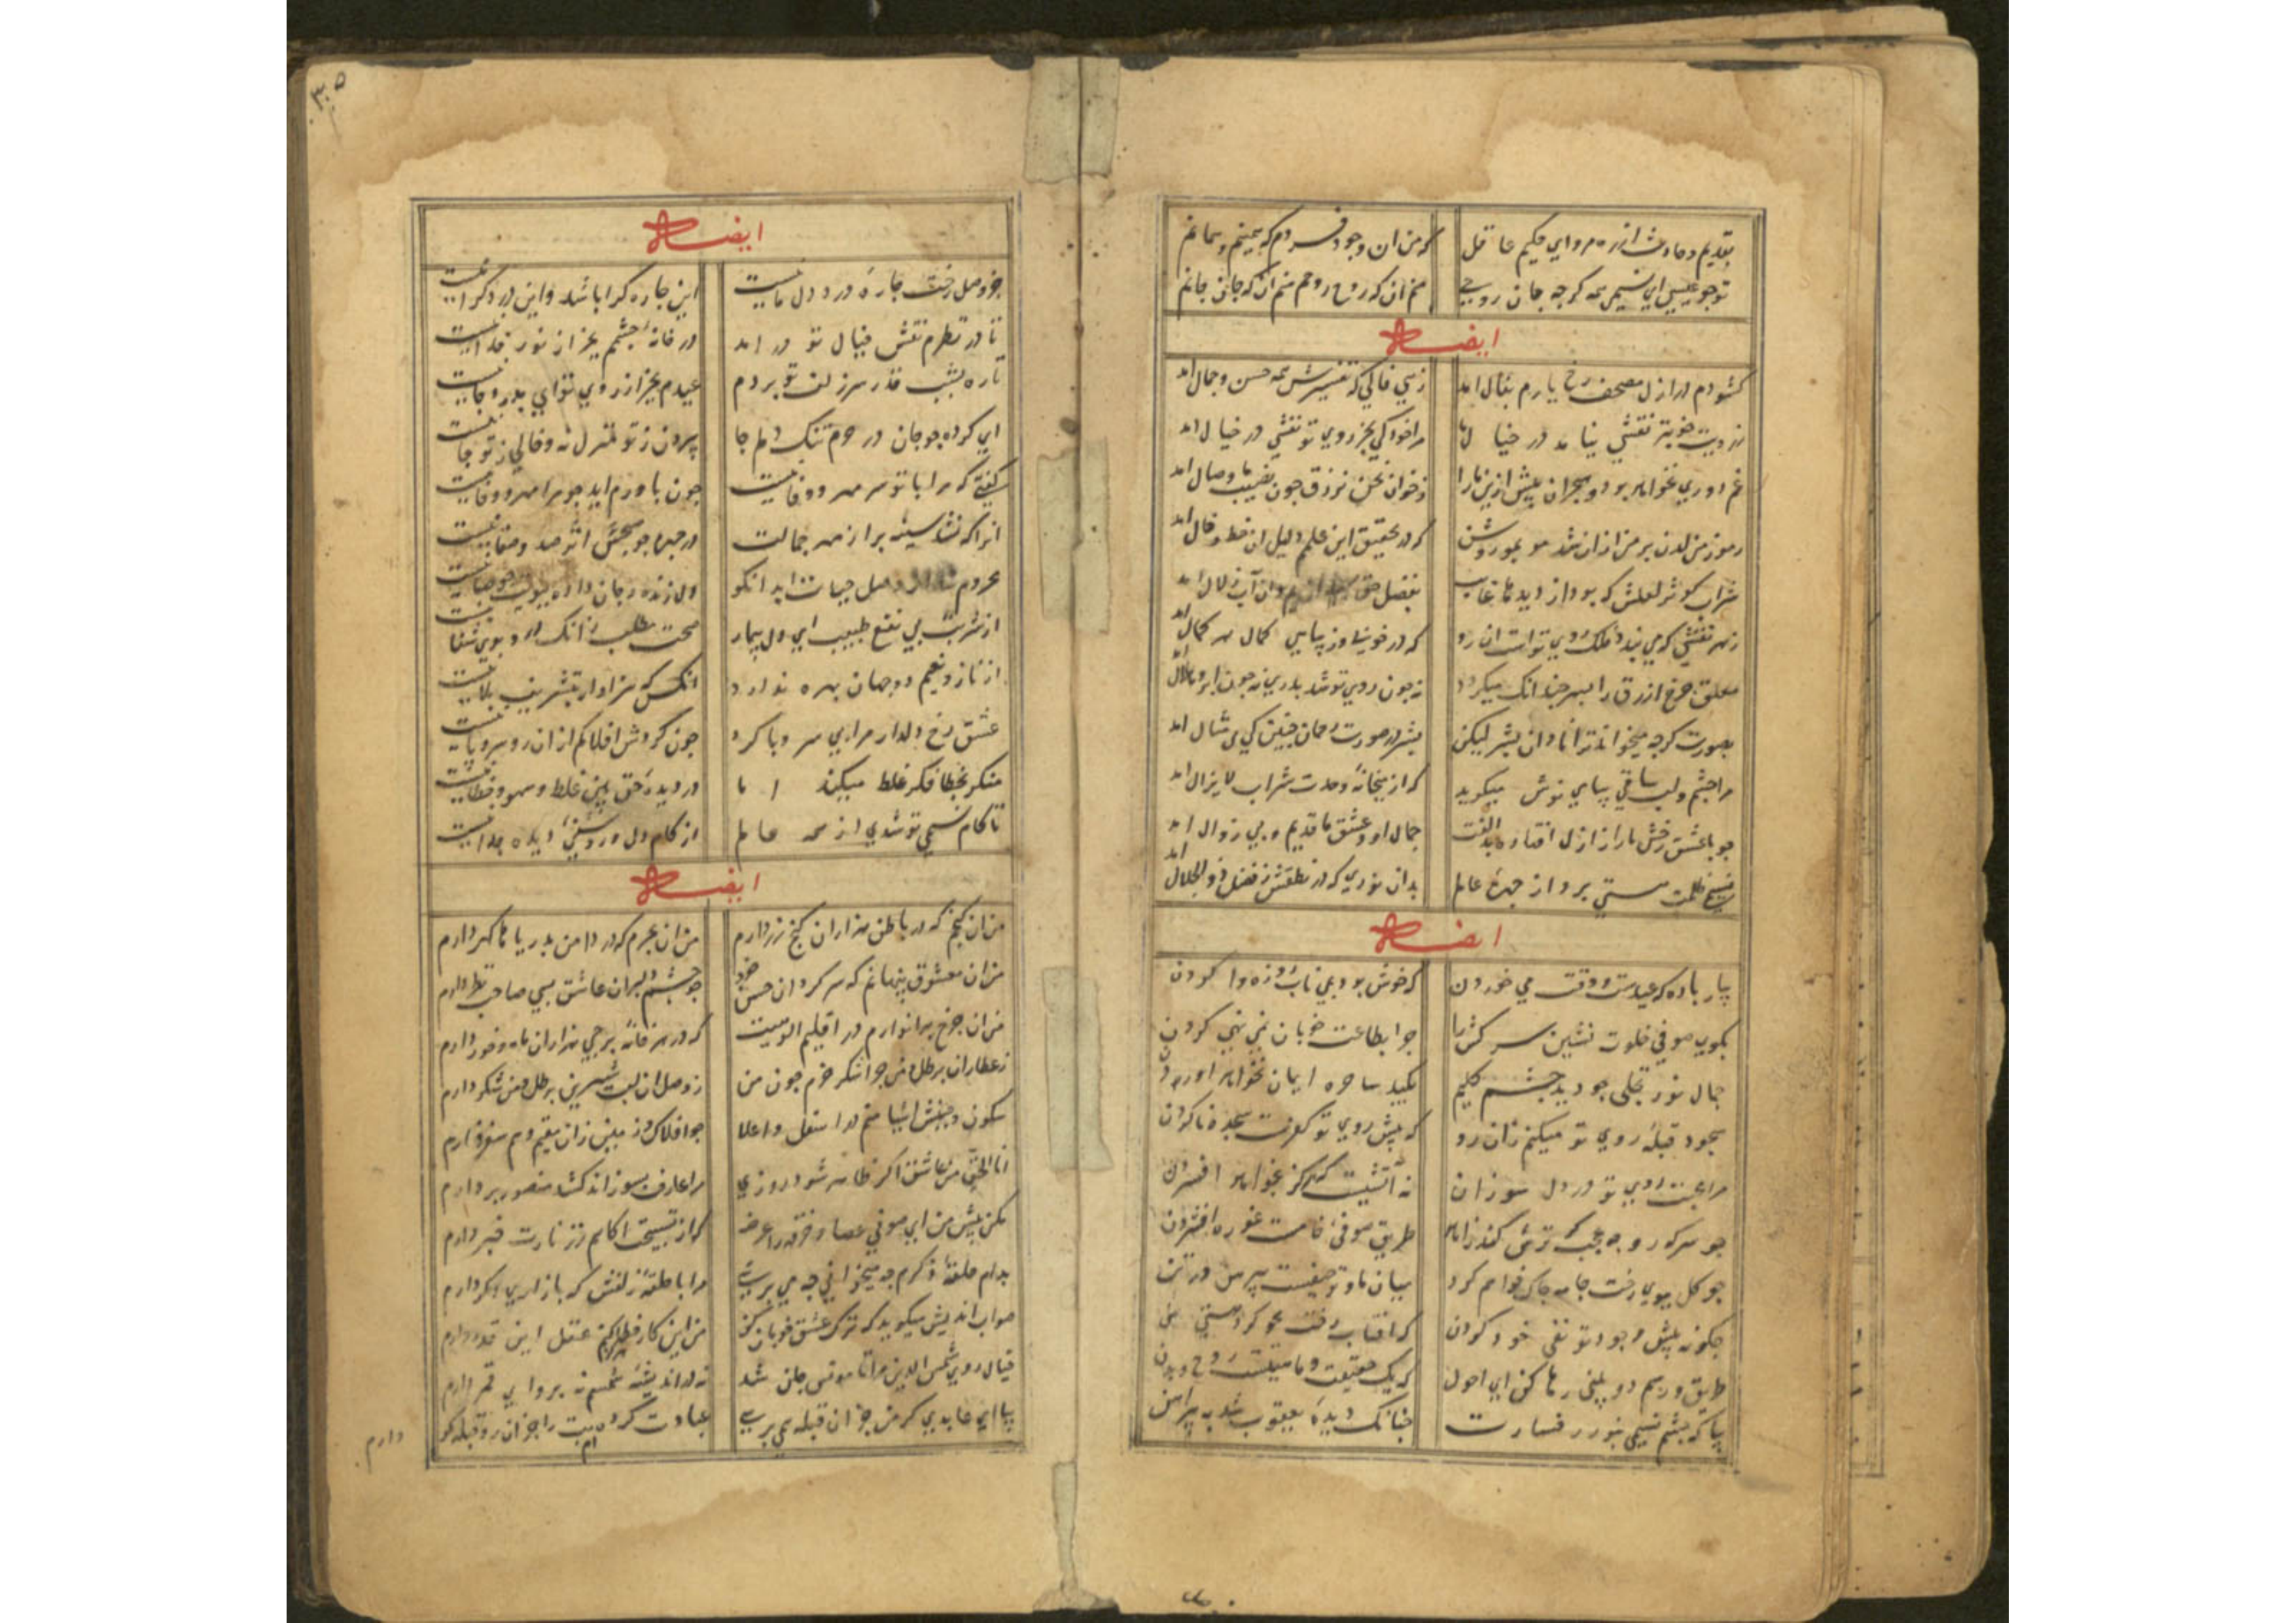 بقدیم و حادث از ره مرو ای حکیم عاقل که من ان وجود فردم که همینم و همانم
تو چو عیسی ای نسیمی همه کرچه جان روحی منم ان که روح روحم منم آن که جان جانم
ایضاً
کشودم در ازل مصحف رخ یارم بفال امد زهی فالی که تفسیرش همه حسن و جمال امد
ز رویت خوبتر نقشی نیامد در خیال ما مرا خود کی بجز روی تو نقشی در خیال امد
غم دوری نخواهد بود و هجران بیش ازین ما را
رموز من لدن بر من ازان شد مو بمو روشن که در تحقیق این علمم دلیل ان خط و خال امد
شراب کوثر لعلش که بود از دیدها غایب بفضل حق وان آب زلال امد
که در خوبی و زیبایی کمال هر کمال امد
معلق چرخ ازرق را بسر چندانک میکردد نه چون روی تو شد بدری نه چون ابرو هلال امد
بصورت کرچه میخوانند ترا نادان بشر لیکن بشر در صورت رحمان چنین کی بی مثال امد
مرا چشم و لب ساقی پیاپی نوش میکوید که از میخانهٔ وحدت شراب لایزال امد
چو با عشق رخش ما را از ازل افتاده بد الفت جمال او و عشق ما قدیم و بی زوال امد
نسیمی ظلمت هستی برد از چهرهٔ عالم بدان نوری که در نطقش ز فضل ذو الجلال امد
ایضاً
بیار باده که عیدست و وقت می خوردن که خوش بود بمی ناب روزه وا کردن
بکوی صوفی خلوت نشین سرکش را چو ابطاعت خوبان نمی نهی کردن
جمال نور تجلی چو دید چشم کلیم بکید ساحره ایمان نخواهد اوردن
سجود قبلهٔ روی تو میکنم زان رو که پیش روی تو کفرست سجده ناکردن
مرا محبت روی تو در دل سوزان نه آتشیت که هرکز نخواهد افسردن
چو سرکه رو چه عجب کر ترش کند زاهد طریق صوفی خامست غوره افشردن
چو کل ببوی رخت جامه چاک خواهم کرد میان ما و تو حیفست پیرهن در تن
چکونه پیش وجود تو نفی خود کردن که افتاب رخت محو کرد هستی من
طریق و رسم دو بینی رها کن ای احول که یک حقیقت و ماهیتست روح و بدن
بیا که چشم نسیمی بنور رخسارت چنانک دیدهٔ یعقوب شد به پیراهن
۳۰۵
ایضاً
جز وصل رخت چارهٔ درد دل ما نیست این چاره کرا باشد و این درد کرا نیست
تا در نظرم نقش خیال تو در امد در خانهٔ چشمم بجز از نور خدا نیست
تا ره بشب قدر سر زلف تو بردم عیدم بجز از روی تو ای بدر دجا نیست
ای کرده چو جان در حرم تنک دلم جا بیرون ز تو منزل نه و خالی ز تو جا نیست
کفتی که مرا با تو سر مهر و وفا نیست چون باورم اید چو مرا مهر و وفا نیست
انرا که نشد سینه پر از مهر جمالت در چهره چو صبحش اثر صدق و صفا نیست
از شربت بی نفع طبیب ای دل بیمار صحت مطلب زانک درو بوی شفا نیست
از ناز و نعیم دو جهان بهره ندارد انکس که سزاوار بتشریف بلا نیست
عشق رخ دلدار مرا بی سر و پا کرد چون کردش افلاکم ازان رو سر و پا نیست
منکر بخطا فکر غلط میکند اما در دیدهٔ حق بین غلط و سهو و خطا نیست
تا کام نسیمی تو شدی از همه عالم از کام دل و روشنی دیده جدا نیست
ایضاً
من ان کنجم که در باطن هزاران کنج زر دارم من ان بحرم که در دامن بدریاها کهر دارم
من ان معشوق پنهانم که سرکردان حسن خود چو چشم دلبران عاشق بسی صاحب نظر دارم
من ان چرخ پر انوارم در اقلیم الوهیت که در هر خانهٔ برجی هزاران ماه و خور دارم
ز عطاران برطل و من چرا شکر خرم چون من ز وصل ان لب شیرین برطل و من شکر دارم
سکون و جنبش اشیا منم در اسفل و اعلا چو افلاک و زمین زان مقیم و هم سفر دارم
انا الحق من عاشق اکر ظاهر شود روزی مرا عارف بسوزاند کشد منصور بر دارم
مکن پیش من ای صوفی عصا و خرقه را عرضه که از تسبیحت اکاهم ز زنارت خبر دارم
بدام حلقهٔ ذکرم چه میخوانی چه می پرسی مرا با حلقهٔ زلفش که بازاری دکر دارم
صواب اندیش میکوید که ترک عشق خوبان کن من این کار خطا کی کنم عقل این قدر دارم
خیال روی شمس الدین مرا تا مونس جان شد نه در اندیشهٔ شمسم نه پروایی قمر دارم
بیا ای عابدی کر من جز ان قبله می پرسی عبادت کرده ام بت را جز ان رو قبله کو
دارم